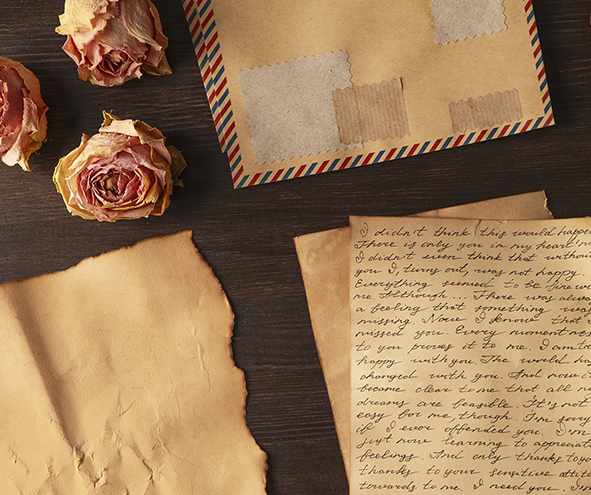 I didn't think this would happen
There is only you in my heart
I didn't even think that without
you I, turns out, was not happy.
Everything seemed to be fine
me. Although... There was always
a feeling that something was
missing. Now I know that I
missed you. Every moment
to you proves it to me. I am
happy with you. The world has
changed with you. And now it
became clear to me that all
dreams are feasible. It's not
easy for me, though. I'm sorry
if I ever offended you. I'm
just now learning to appreciate
feelings. And only thanks to you
thanks to your sensitive
towards to me. I need you.